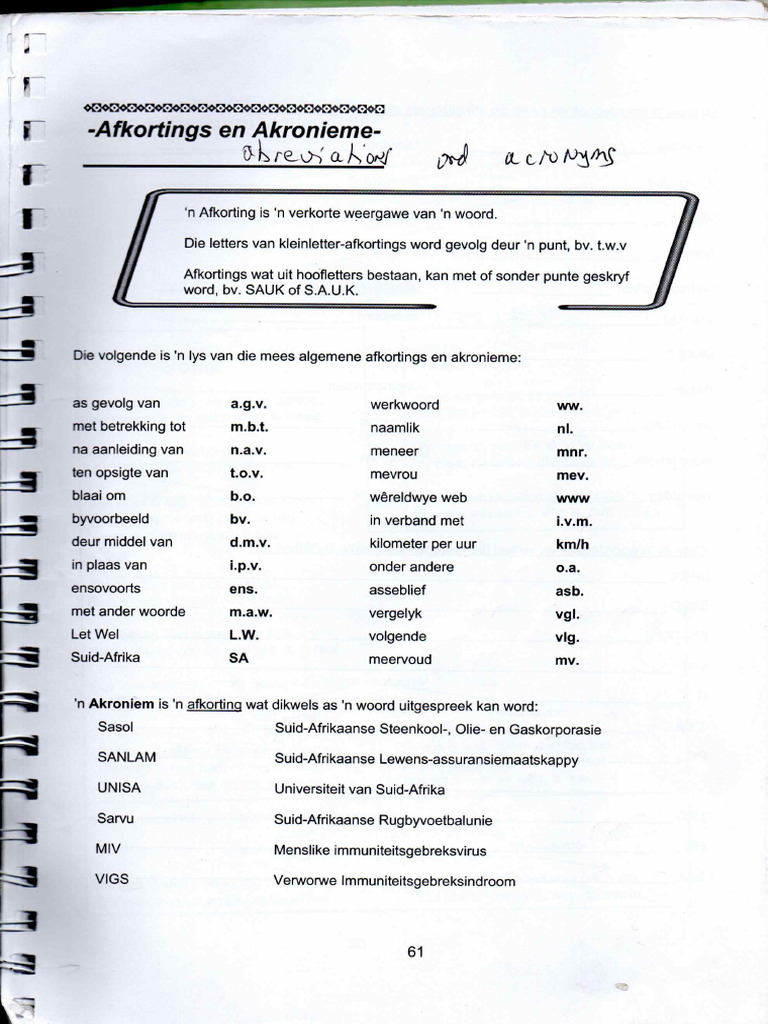 -Afkortings en Akronieme-
abreviations and acronyms
'n Afkorting is 'n verkorte weergawe van 'n woord.
Die letters van kleinletter-afkortings word gevolg deur 'n punt, bv. t.w.v
Afkortings wat uit hoofletters bestaan, kan met of sonder punte geskryf
word, bv. SAUK of S.A.U.K.
Die volgende is 'n lys van die mees algemene afkortings en akronieme:
as gevolg van a.g.v. werkwoord ww.
met betrekking tot m.b.t. naamlik nl.
na aanleiding van n.a.v. meneer mnr.
ten opsigte van t.o.v. mevrou mev.
blaai om b.o. wêreldwye web www
byvoorbeeld bv. in verband met i.v.m.
deur middel van d.m.v. kilometer per uur km/h
in plaas van i.p.v. onder andere o.a.
ensovoorts ens. asseblief asb.
met ander woorde m.a.w. vergelyk vgl.
Let Wel L.W. volgende vlg.
Suid-Afrika SA meervoud mv.
'n Akroniem is 'n afkorting wat dikwels as 'n woord uitgespreek kan word:
Sasol Suid-Afrikaanse Steenkool-, Olie- en Gaskorporasie
SANLAM Suid-Afrikaanse Lewens-assuransiemaatskappy
UNISA Universiteit van Suid-Afrika
Sarvu Suid-Afrikaanse Rugbyvoetbalunie
MIV Menslike immuniteitsgebreksvirus
VIGS Verworwe Immuniteitsgebreksindroom
61